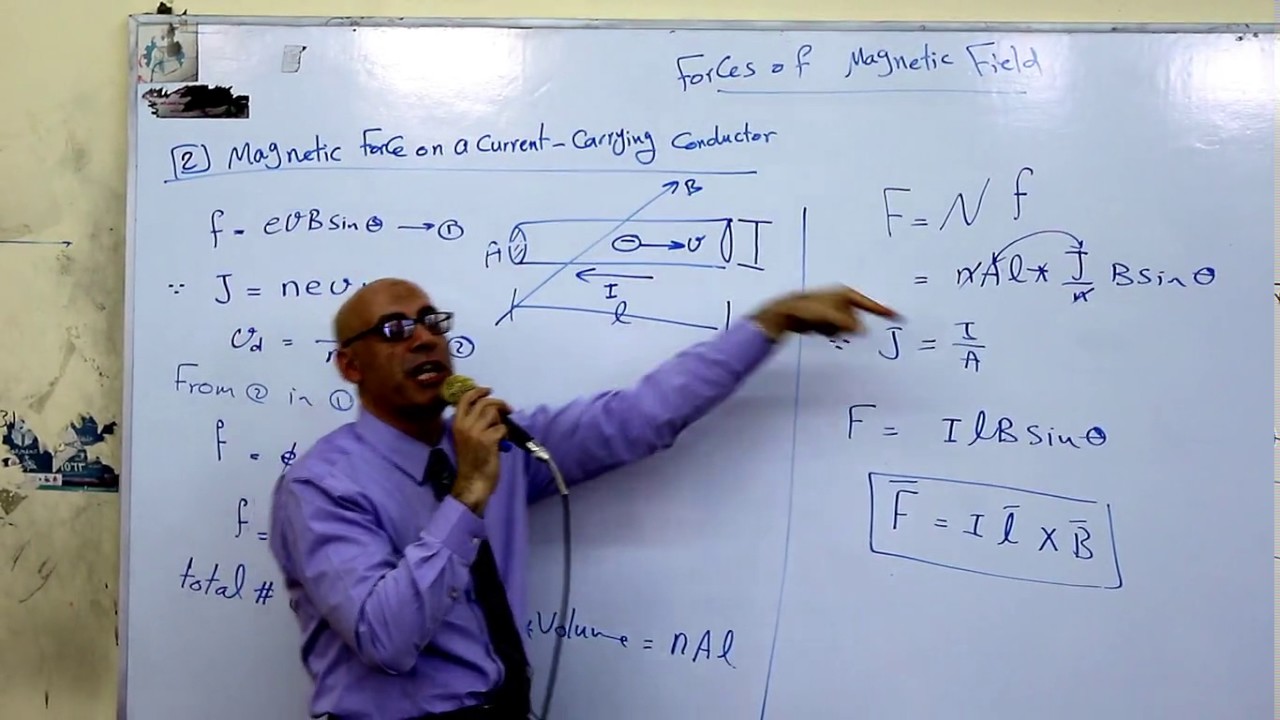 Forces of Magnetic Field
[2] Magnetic force on a Current-Carrying Conductor
f = eυB sin θ → ①
∵ J = neυ
υd = ②
From ② in ①
f =
f =
total #
Volume = nAl
B
A
− → υ
I
I
l
F = N f
= nAl * J/n B sin θ
∵ J = I/A
F = I l B sin θ
F̄ = I l̄ × B̄